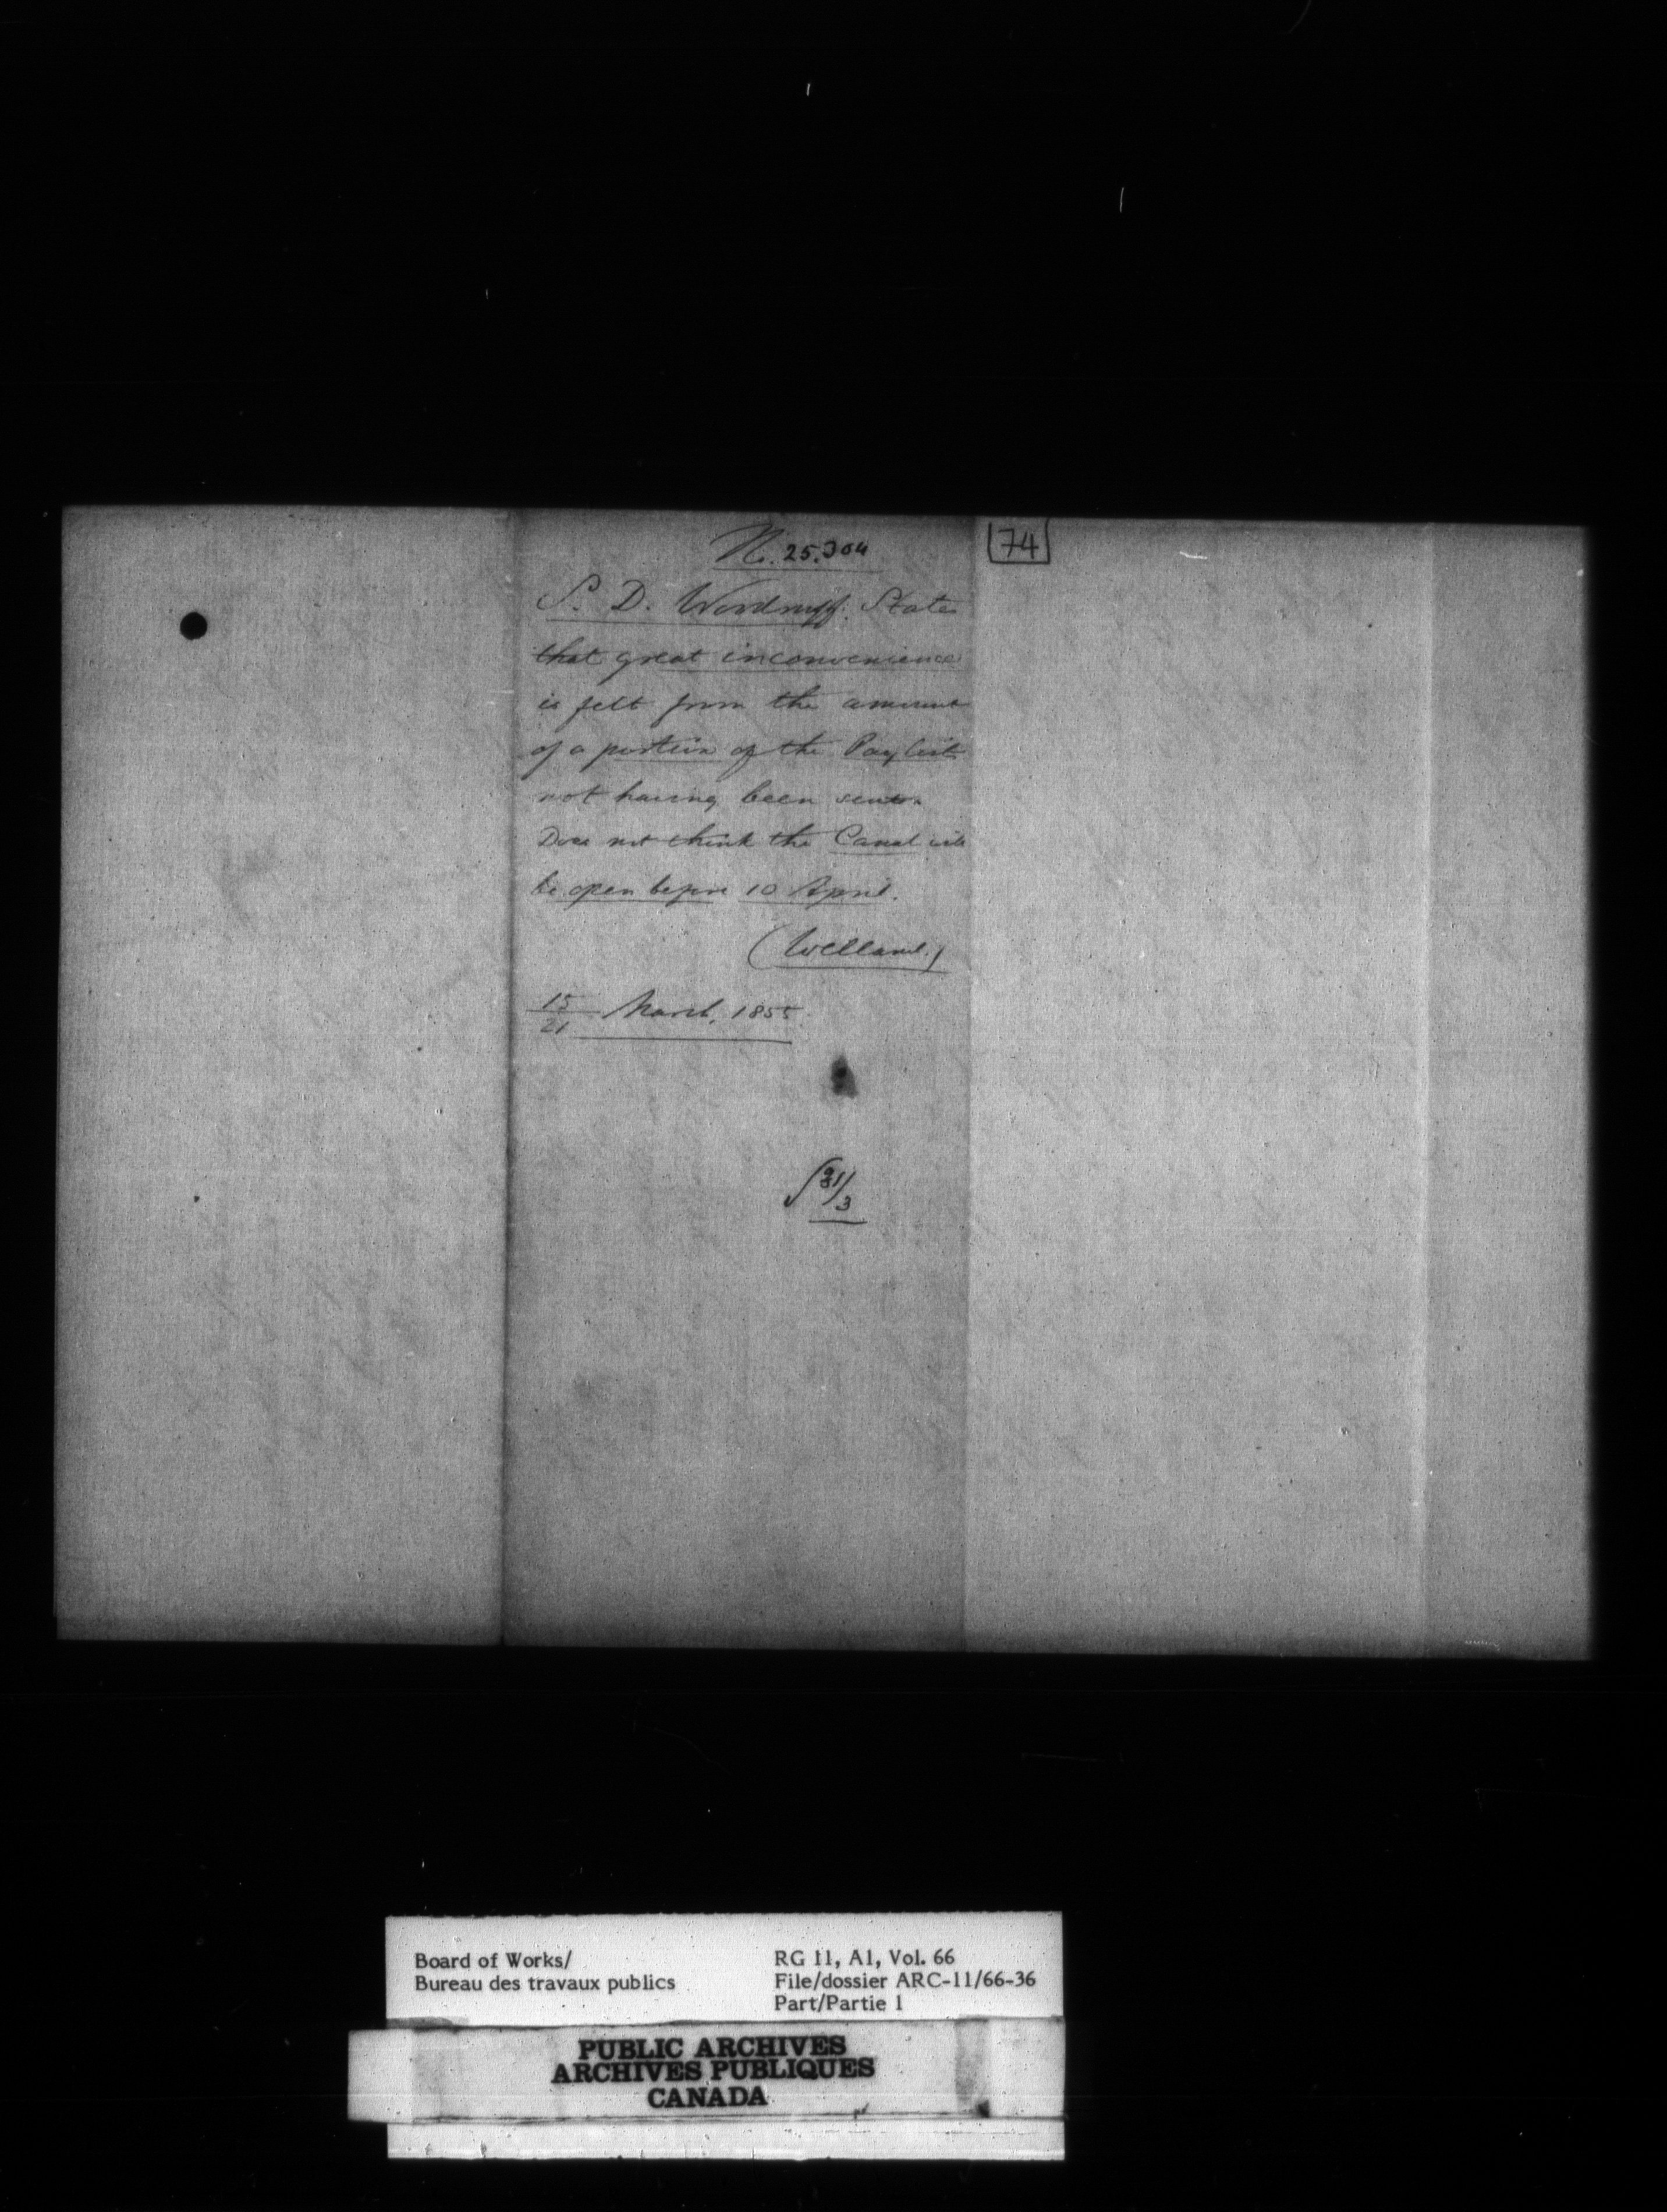 N. 25.304
[74]
S. D. Woodruff. States
that great inconvenience
is felt from the amount
of a portion of the Paylist
not having been sent.
Does not think the Canal will
be open before 10 April.
(Welland.)
15/21 March, 1855.
31/3
Board of Works/
Bureau des travaux publics
RG 11, A1, Vol. 66
File/dossier ARC-11/66-36
Part/Partie 1
PUBLIC ARCHIVES
ARCHIVES PUBLIQUES
CANADA